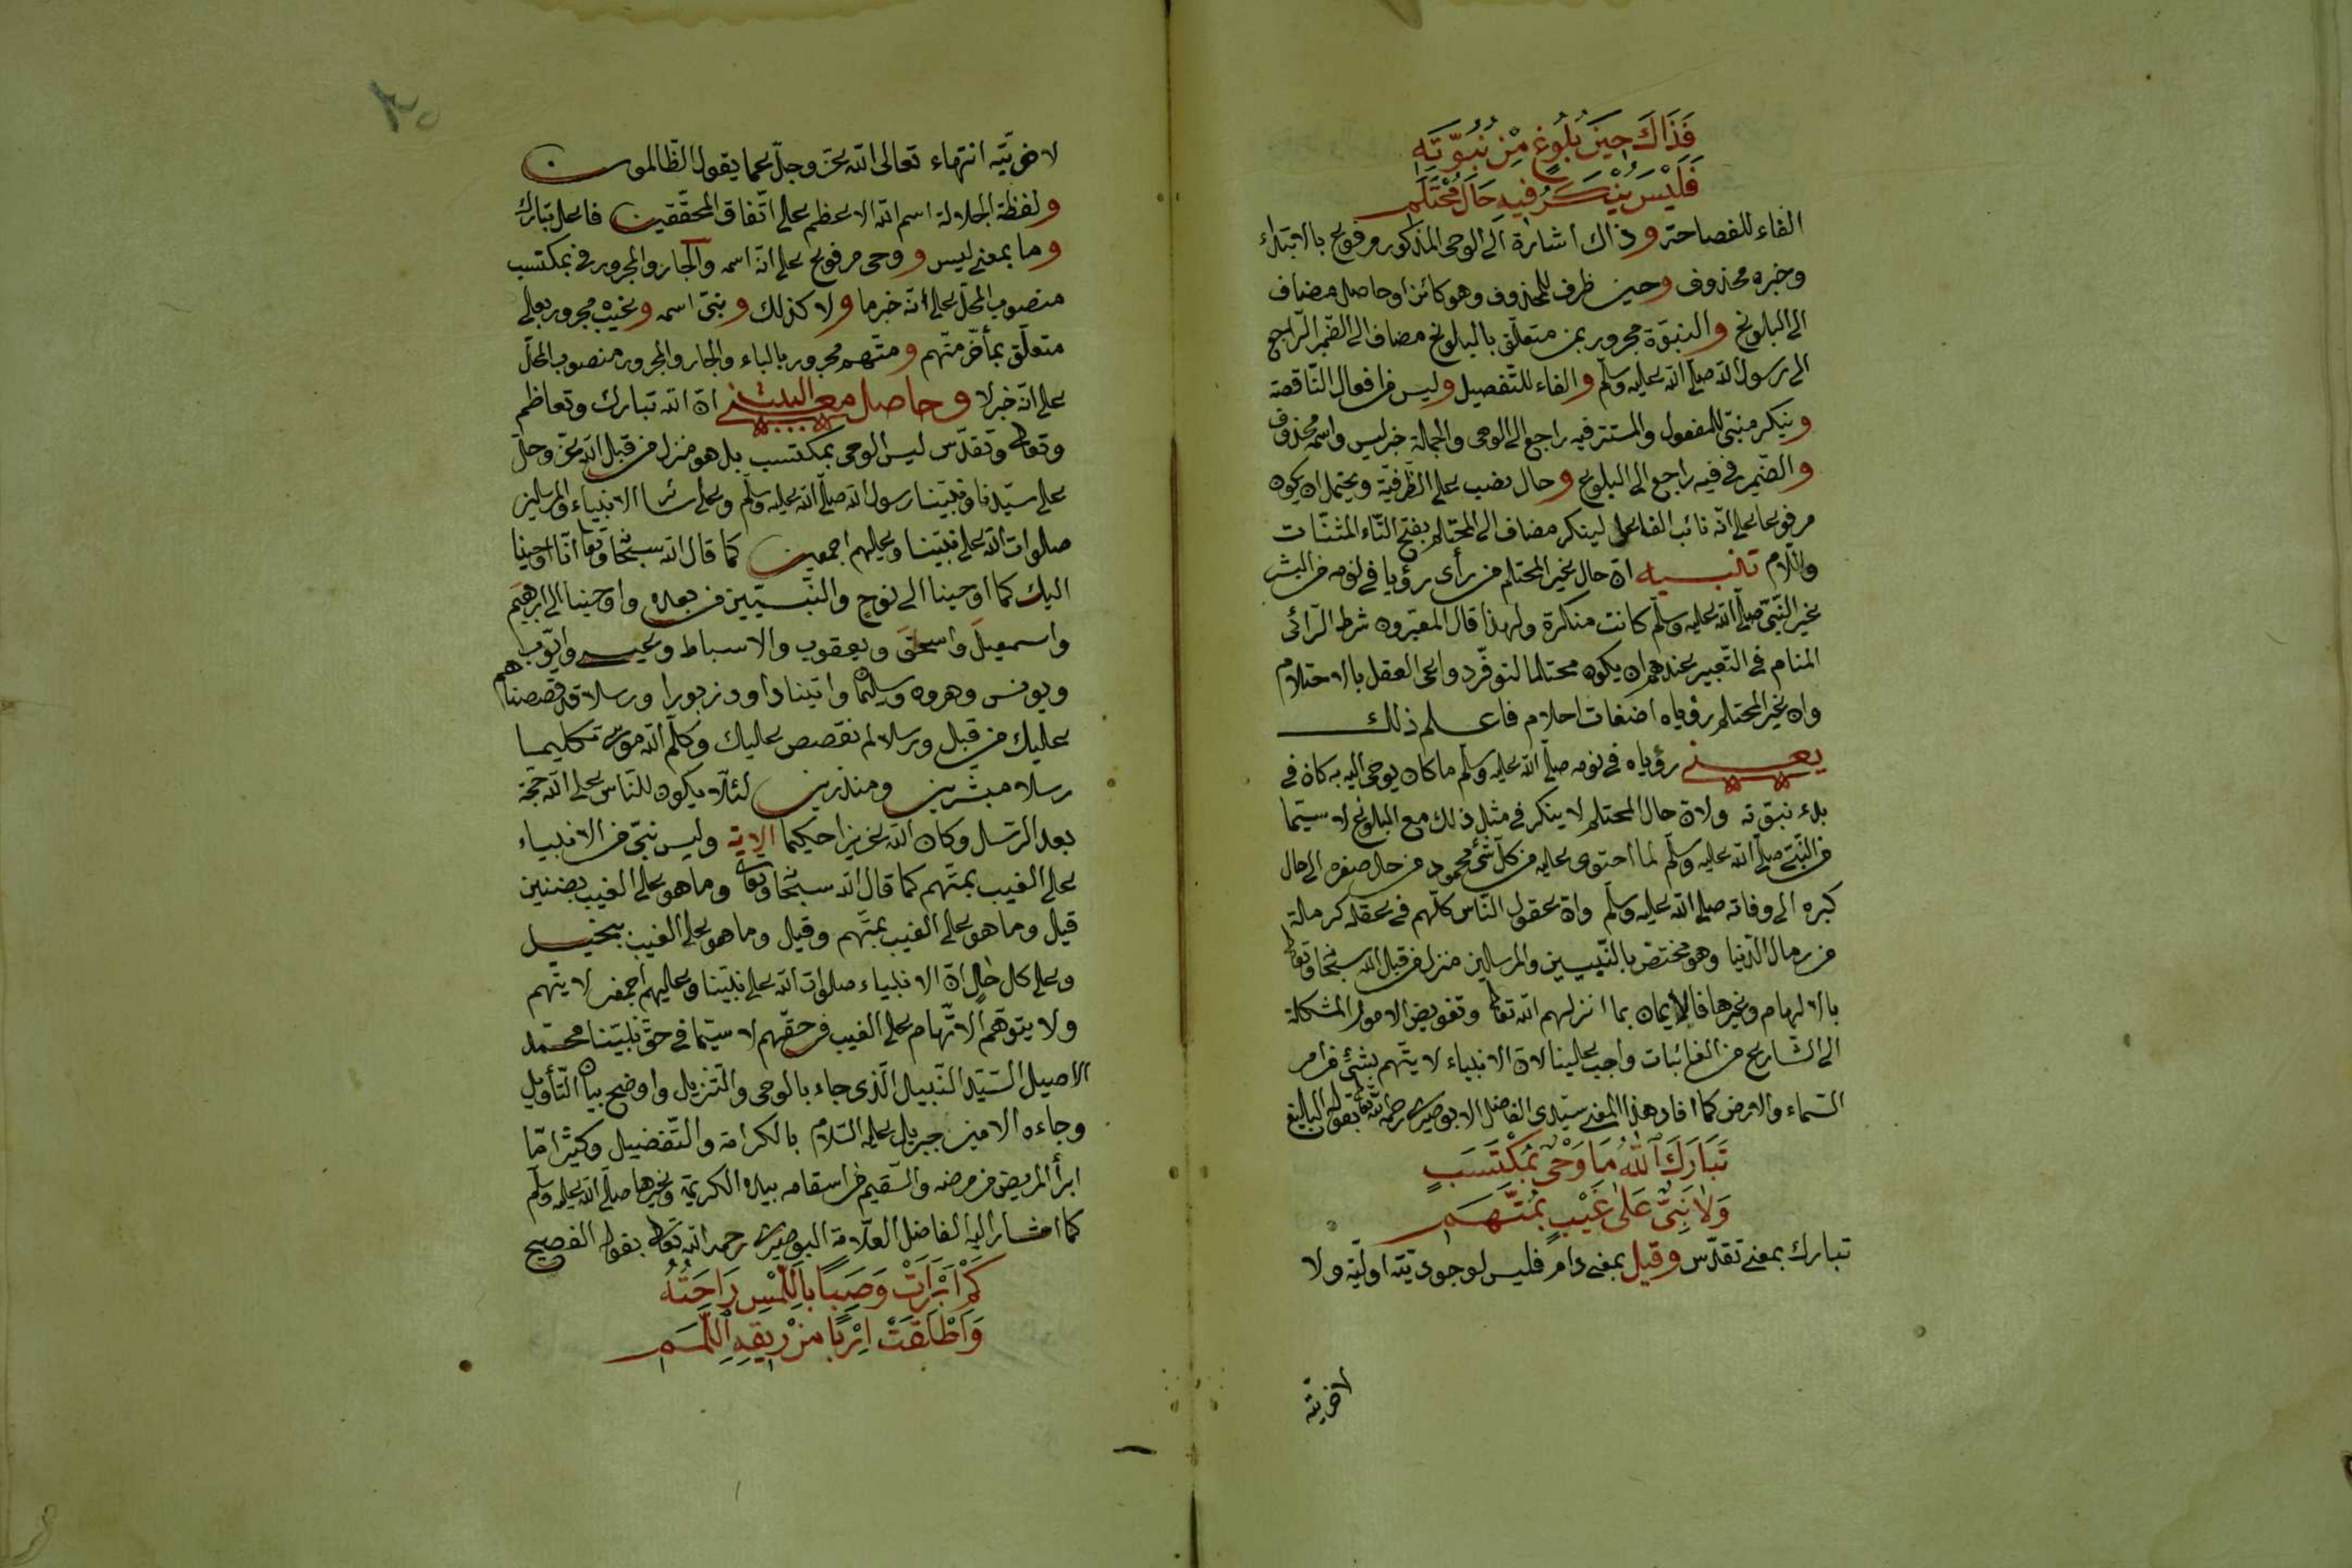 فَذَاكَ حِينَ بُلُوغٍ مِنْ نُبُوَّتِهِ
فَلَيْسَ يُنْكَرُ فِيهِ حَالُ مُحْتَلَمِ
الفاء للفصاحة وذاك اشارة الى الوحى المذكور مرفوع بالابتداء
وخبره محذوف وحين ظرف للمحذوف وهو كائن او حاصل مضاف
الى البلوغ والنبوّة مجرور بمن متعلّق بالبلوغ مضاف الى الضّمير الرّاجع
الى رسول الله صلّى الله عليه وسلّم والفاء للتّفصيل وليس من افعال النّاقصة
وينكر مبنىّ للمفعول والمستتر فيه راجع الى الوحى والجملة خبر ليس واسمه محذوف
والضّمير فى فيه راجع الى البلوغ وحال نصب على الظّرفيّة ويحتمل ان يكون
مرفوعا على انّه نائب الفاعل لينكر مضاف الى المحتلم بفتح التّاء المثنّات
واللّام تنبيه انّ حال غير المحتلم من رأى رؤيا فى نومه من البشر
غير النّبىّ صلّى الله عليه وسلّم كانت منكرة ولهذا قال المعبّرون شرط الرّائى
المنام فى التّعبير عندهم ان يكون محتلما لتوفّر دواعى العقل بالاحتلام
وان غير المحتلم رؤياه اضغاث احلام فاعلم ذلك
يعنى رؤياه فى نومه صلّى الله عليه وسلّم ما كان يوحى اليه به كان فى
بدء نبوّته ولانّ حال المحتلم لا ينكر فى مثل ذلك مع البلوغ لا سيّما
من النّبىّ صلّى الله عليه وسلّم لما احتوى عليه من كلّ شئ محمود من حال صغره الى حال
كبره الى وفاته صلى الله عليه وسلّم وانّ عقول النّاس كلّهم فى عقله كرملة
من رمال الدّنيا وهو مختصّ بالنّبيين والمرسلين منزل من قبل الله سبحا وتعا
بالالهام وغيرها فالايمان بما انزلهم الله تعا وتفويض الامور المشكلة
الى الشّارع من الغائبات واجب علينا لانّ الانبياء لا يتّهم بشئ من امر
السّماء والارض كما افاد هذا المعنى سيّدى الفاضل الابوصيرى رحمه الله تعا بقوله البالغ
تَبَارَكَ اللهُ مَا وَحْىٌ بِمُكْتَسَبٍ
وَلَا نَبِىٌّ عَلَى غَيْبٍ بِمُتَّهَمِ
تبارك بمعنى تقدّس وقيل بمعنى دام فليس لوجوديّته اوليّة ولا
لاخريّته
لاخريّته انتهاء تعالى الله عزّ وجلّ عما يقول الظّالمون
ولفظة الجلالة اسم الله الاعظم على اتّفاق المحقّقين فاعل تبارك
وما بمعنى ليس ووحى مرفوع على انّه اسمه والجار والمجرور فى بمكتسب
منصوب المحلّ على انّه خبر ما ولا كذلك ونبىّ اسمه وغيب مجرور بعلى
متعلّق بمأخّر متّهم ومتّهم مجرور بالباء والجار والمجرور منصوب المحلّ
على انّه خبر لا وحاصل معنى البيت انّ الله تبارك وتعاظم
وتعا وتقدّس ليس الوحى بمكتسب بل هو منزل من قبل الله عزّ وجلّ
على سيّدنا ونبيّنا رسول الله صلّى الله عليه وسلّم وعلى سائر الانبياء والمرسلين
صلوات الله على نبيّنا وعليهم اجمعين كما قال الله سبحا وتعا انّا اوحينا
اليك كما اوحينا الى نوح والنّبيّين من بعده واوحينا الى ابرهيم
واسمعيل واسحق ويعقوب والاسباط وعيسى وايّوب
ويونس وهرون وسليمان واتينا داوود زبورا ورسلا قد قصصناهم
عليك من قبل ورسلا لم نقصص عليك وكلّم الله موسى تكليما
رسلا مبشّرين ومنذرين لئلّا يكون للنّاس على الله حجّة
بعد الرّسل وكان الله عزيزا حكيما الاية وليس نبىّ من الانبياء
على الغيب بمتّهم كما قال الله سبحا وتعا وما هو على الغيب بضنين
قيل وما هو على الغيب بمتّهم وقيل وما هو على الغيب ببخيل
وعلى كل حال انّ الانبياء صلوات الله على نبيّنا وعليهم اجمعين لا يتّهم
ولا يتوهّم الاتّهام على الغيب فى حقّهم لا سيّما فى حقّ نبيّنا محمّد
الاصيل السّيّد النّبيل الّذى جاء بالوحى والتّنزيل واوضح بيان التّأويل
وجاءه الامين جبريل عليه السّلام بالكرامة والتّفضيل وكثيرا مّا
ابرأ المريض من مرضه والسّقيم من اسقامه بيده الكريمة وغيرها صلّى الله عليه وسلّم
كما اشار اليه الفاضل العلّامة البوصيرى رحمه الله تعا بقوله الفصيح
كَمْ اَبْرَأَتْ وَصِبًا بِاللَّمْسِ رَاحَتُهُ
وَاَطْلَقَتْ اَرِبًا مِنْ رِبْقَةِ اللَّمَمِ